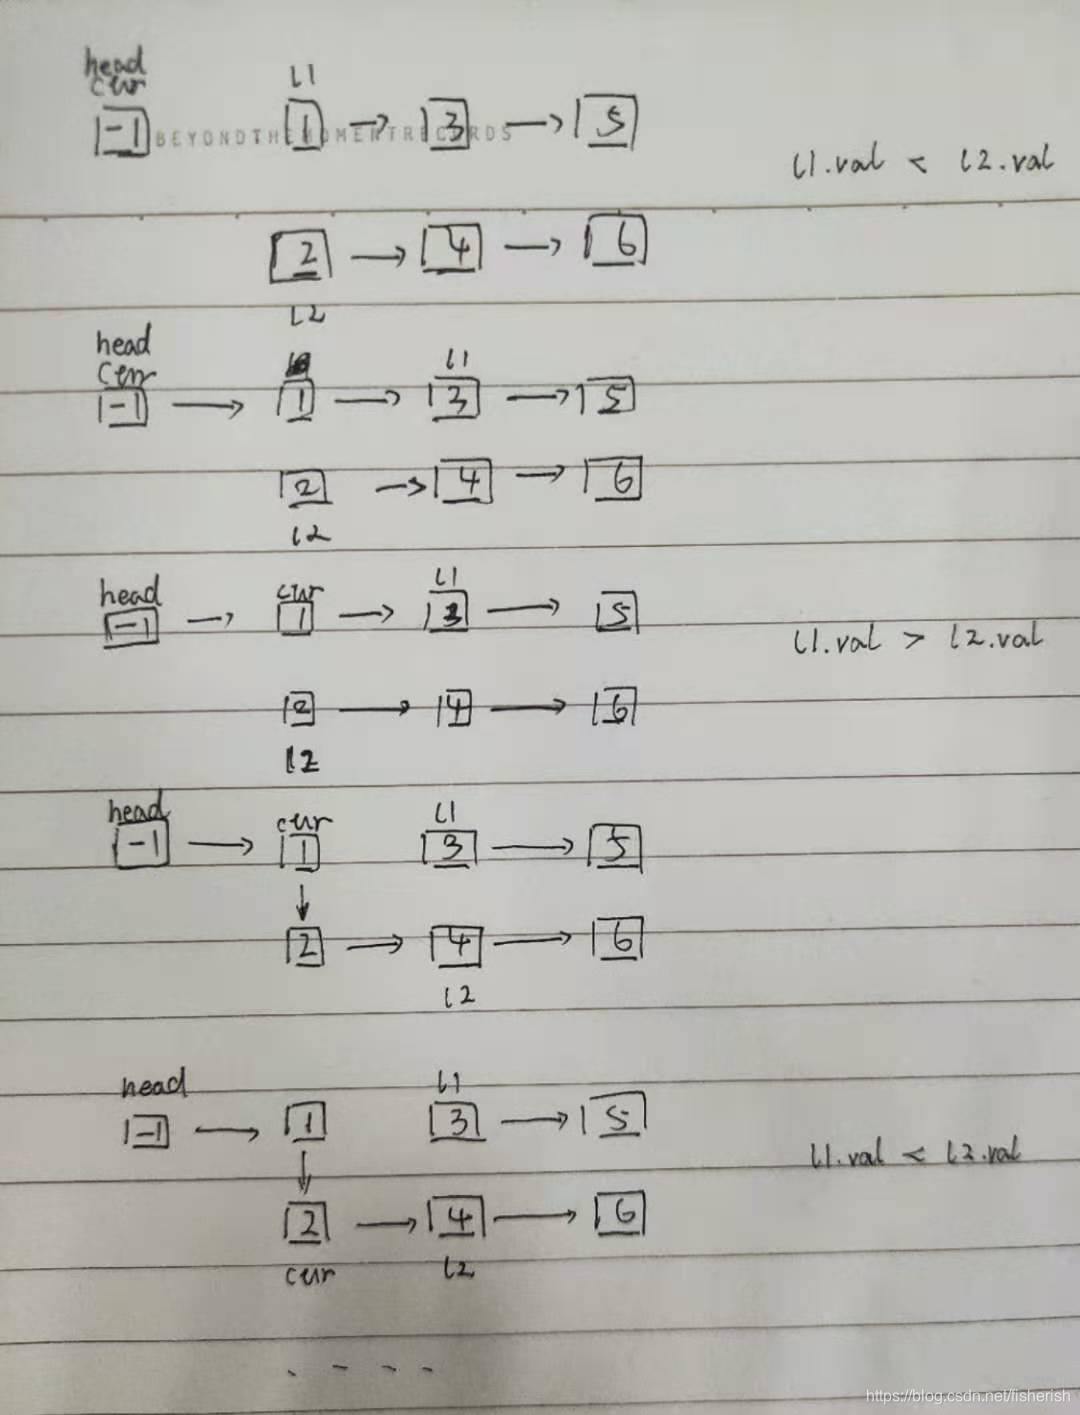 head
cur l1
-1 1 → 3 → 5
BEYONDTHEMOMENTRECORDS
l1.val < l2.val
2 → 4 → 6
l2
head
cur l1
-1 → 1 → 3 → 5
2 → 4 → 6
l2
head cur l1
-1 → 1 → 3 → 5
l1.val > l2.val
2 → 4 → 6
l2
head cur l1
-1 → 1 3 → 5
↓
2 → 4 → 6
l2
head l1
-1 → 1 3 → 5
l1.val < l2.val
↓
2 → 4 → 6
cur l2
. - - -
https://blog.csdn.net/fisherish